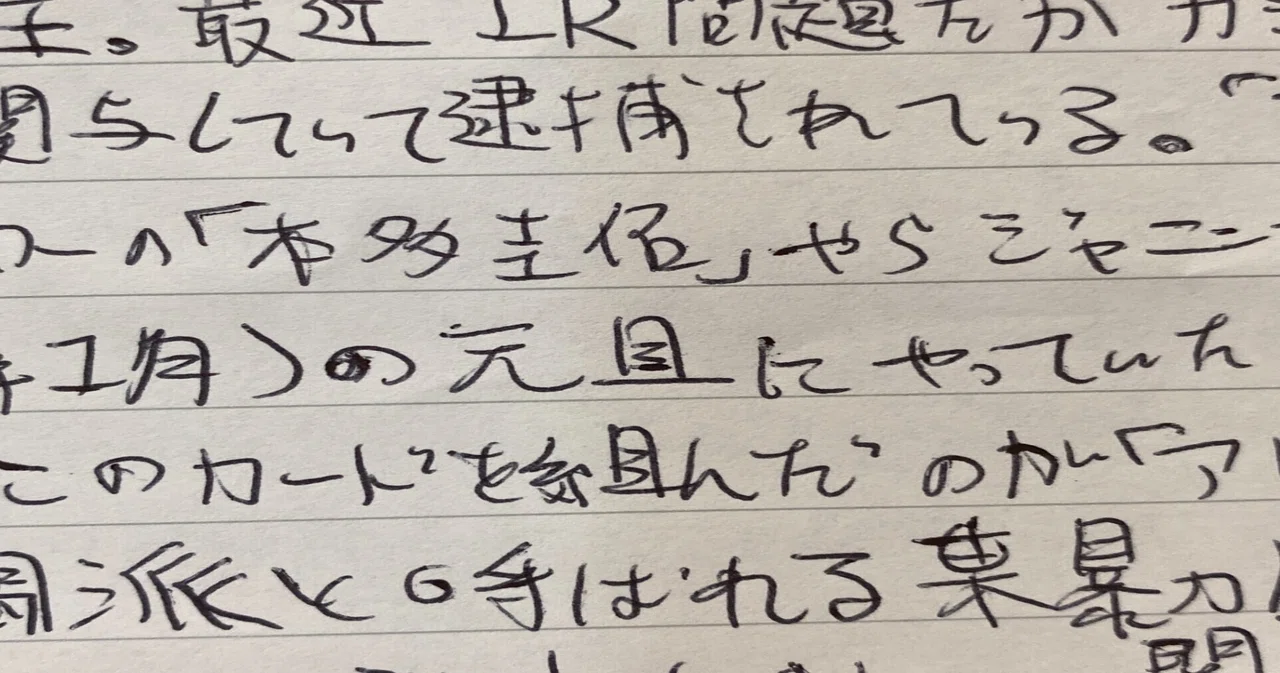 。最近IR問題だかカ
関与していて逮捕されている。「
ーの「本多圭佑」やらジャニー
1月)の元旦にやっていた
このカードを組んだのが「ア
闘派と呼ばれる某暴力